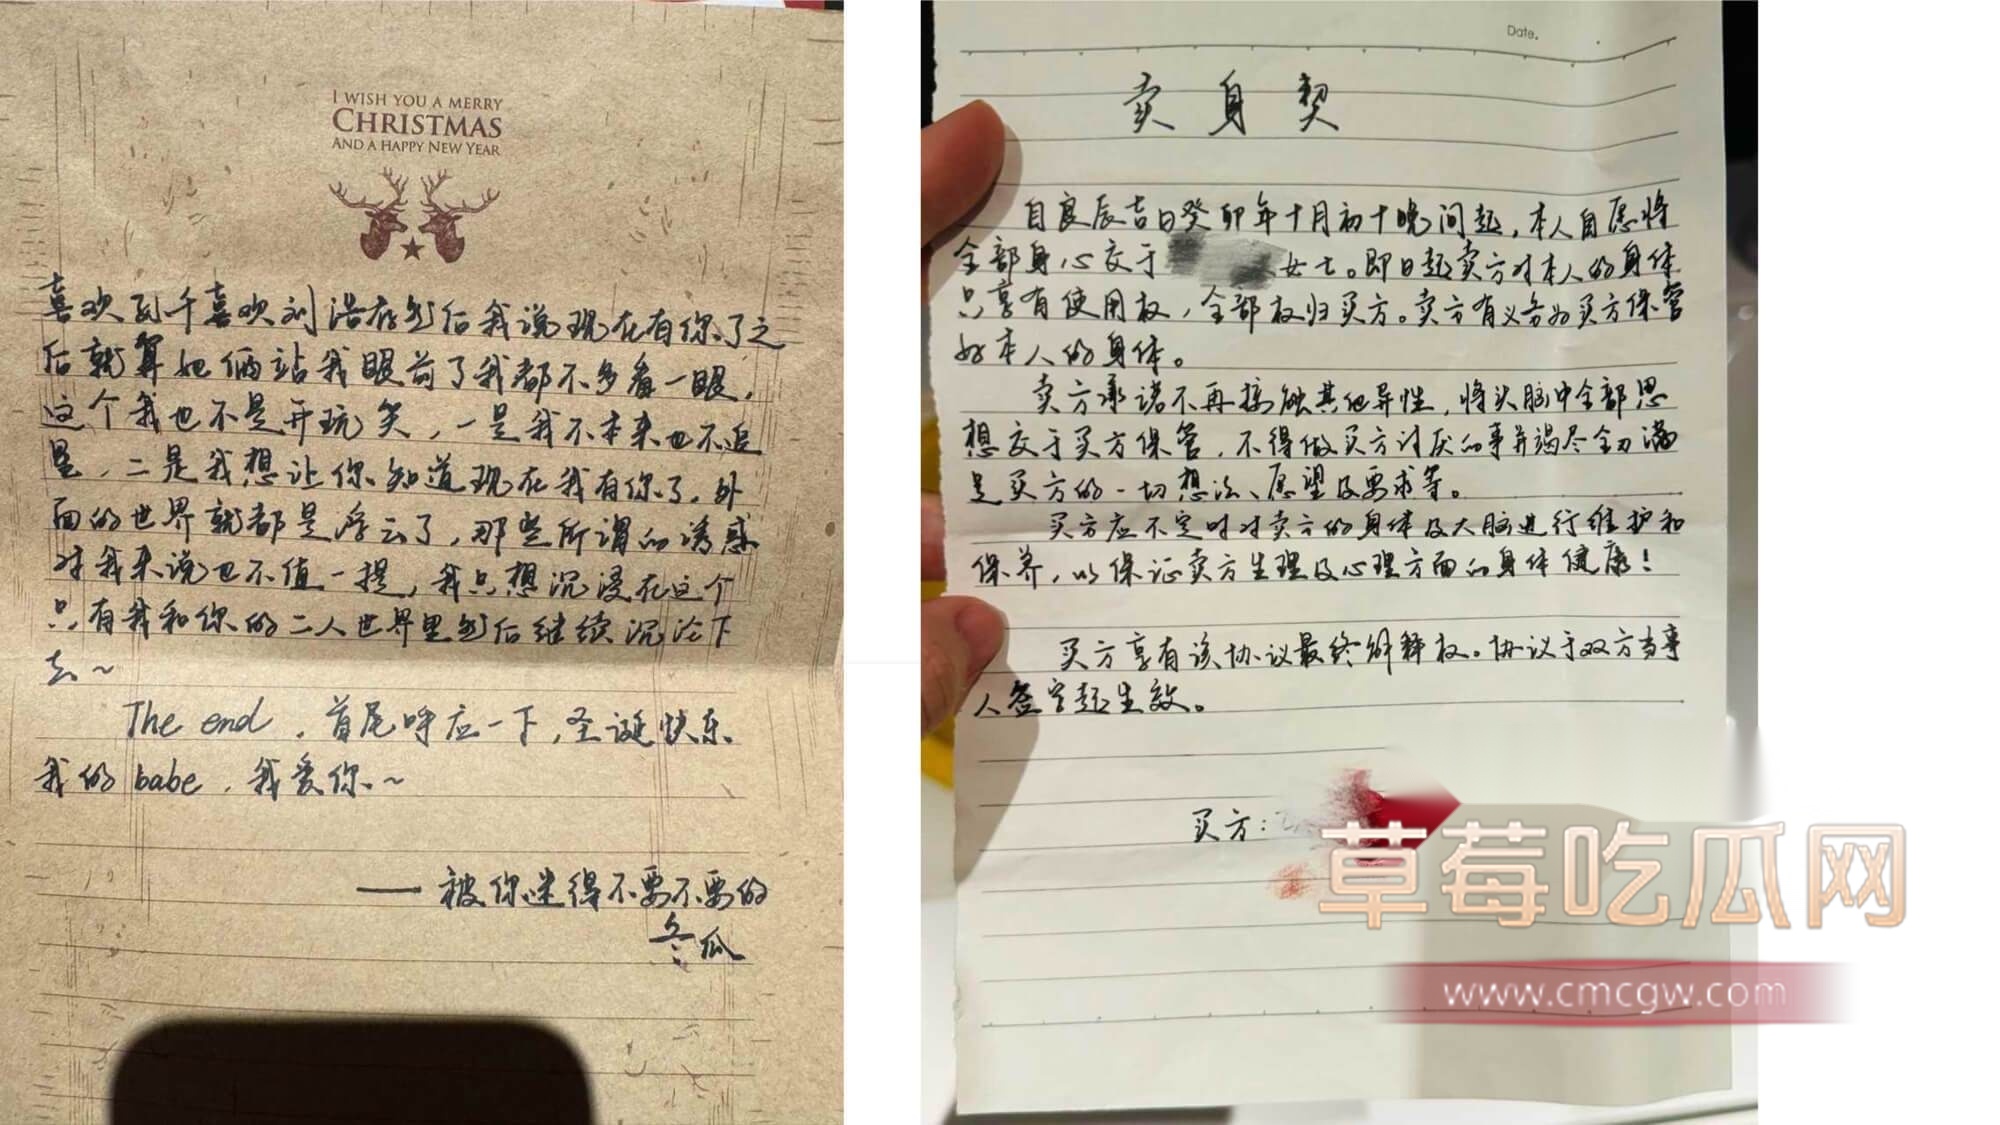 I WISH YOU A MERRY
CHRISTMAS
AND A HAPPY NEW YEAR
喜欢到千喜欢刘浩存然后我说现在有你了之
后就算她俩站我眼前了我都不多看一眼，
这个我也不是开玩笑，一是我不本来也不追
星，二是我想让你知道现在我有你了，外
面的世界就都是浮云了，那些所谓的诱惑
对我来说也不值一提，我只想沉浸在这个
只有我和你的二人世界里然后继续沉沦下
去~
The end，首尾呼应一下，圣诞快乐
我的babe，我爱你~
——被你迷得不要不要的
冬瓜
Date.
卖身契
自良辰吉日癸卯年十月初十晚间起，本人自愿将
全部身心交于女士。即日起卖方对本人的身体
只享有使用权，全部权归买方。卖方有义务为买方保管
好本人的身体。
卖方承诺不再接触其他异性，将头脑中全部思
想交于买方保管，不得做买方讨厌的事并竭尽全力满
足买方的一切想法、愿望及要求等。
买方应不定时对卖方的身体及大脑进行维护和
保养，以保证卖方生理及心理方面的身体健康！
买方享有该协议最终解释权。协议于双方当事
人签字起生效。
买方：
草莓吃瓜网
www.cmcgw.com